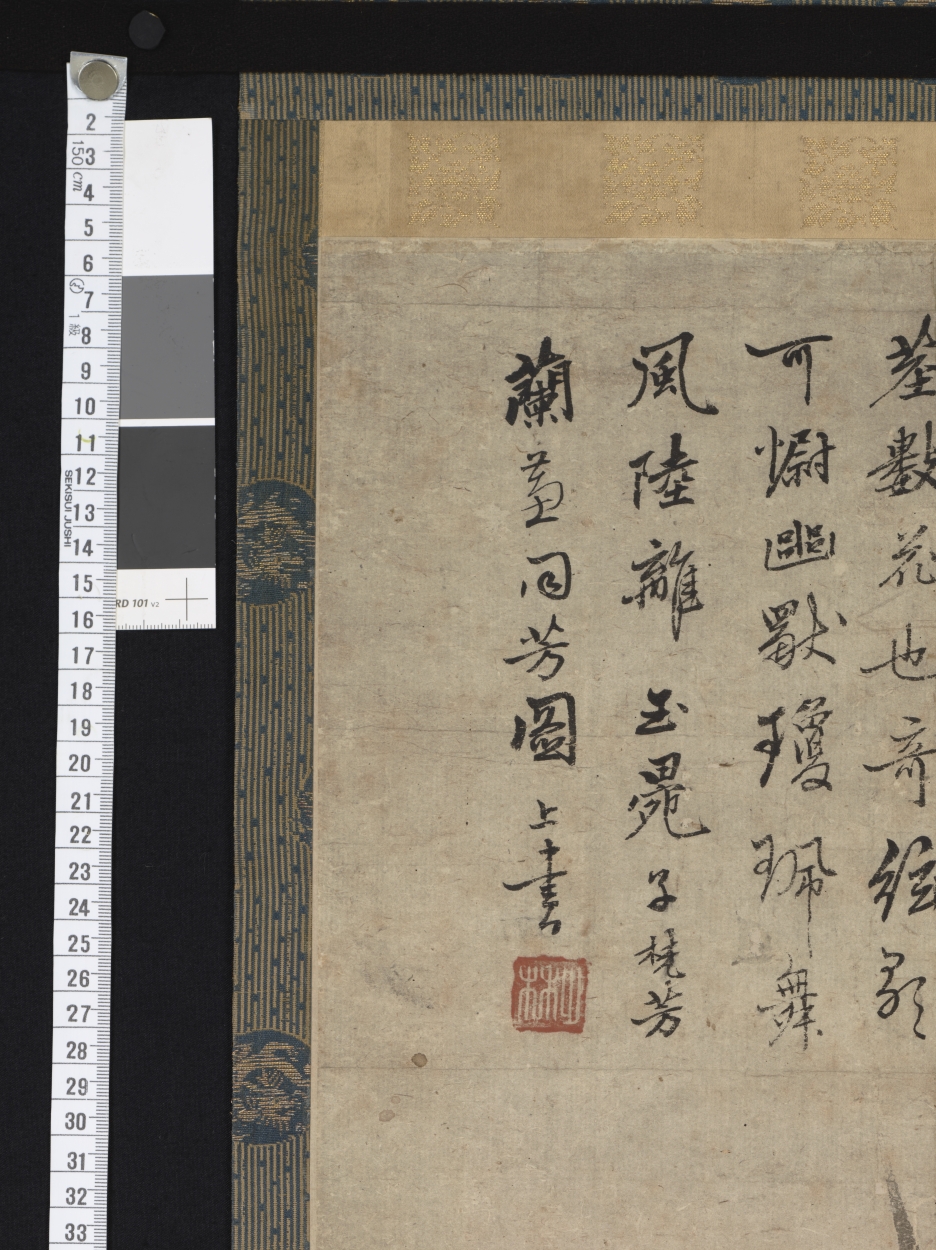 莖數花也奇
可慰幽獨瓊珮舞
風陸離 玉畹子梵芳
蘭蕙同芳圖 上書
2
3
150 cm
4
5
6
7
1級
8
9
10
11
12
SEKISUI JUSHI
13
14
15
16
17
18
19
20
21
22
23
24
25
26
27
28
29
30
31
32
33
RD 101 V2